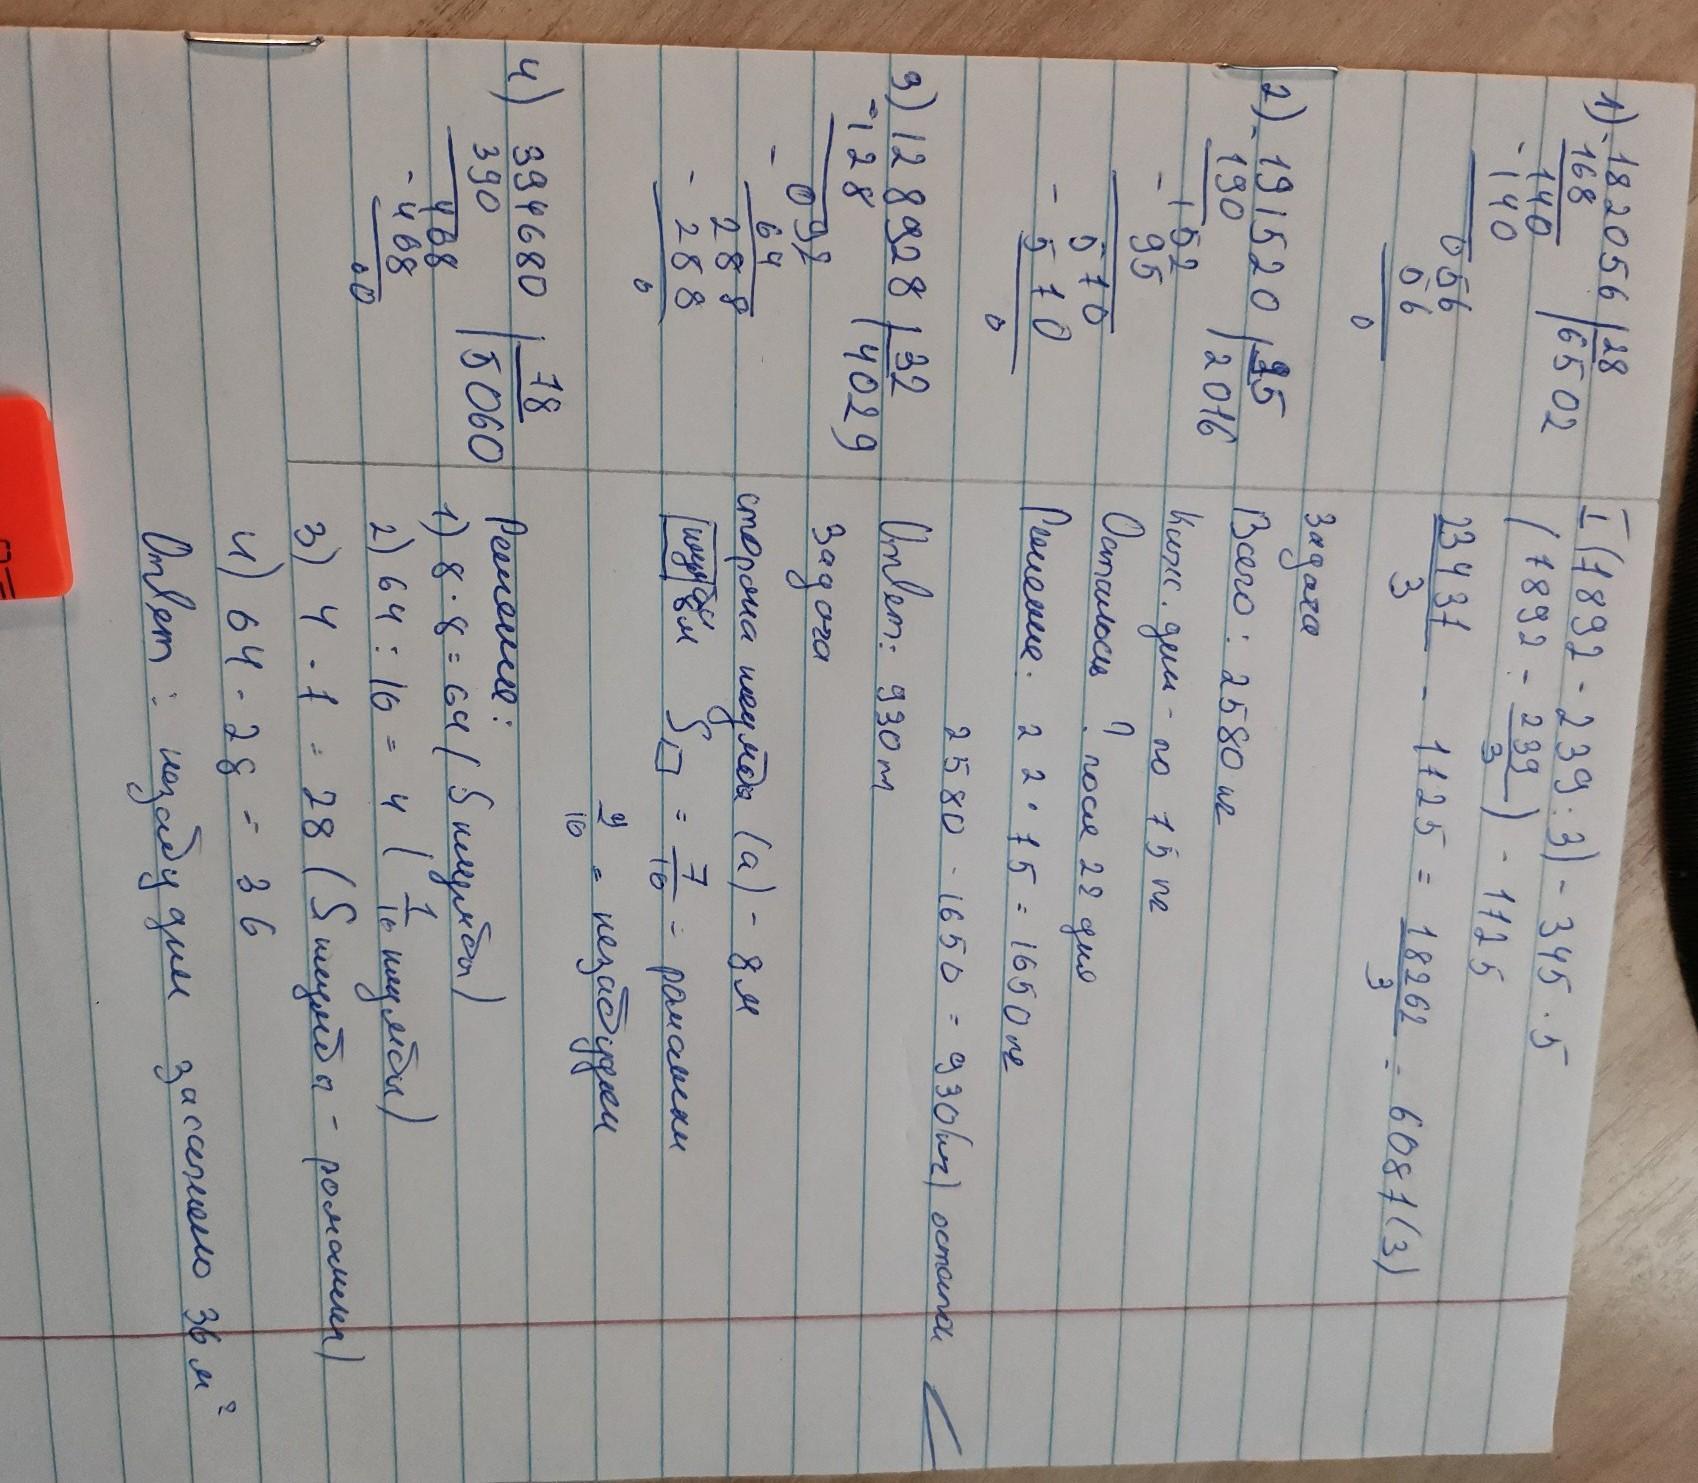 1) - 182056 | 28
168 | 6502
140
- 140
056
56
0
2) - 191520 | 95
190 | 2016
152
- 95
570
- 570
0
3) 128928 | 32
- 128 | 4029
092
- 64
288
- 288
0
4) 394680 | 78
390 | 5060
468
- 468
00
I (7892 - 239 : 3) - 345 . 5
(7892 - 239/3) - 1725
23437/3 - 1725 = 18262/3 = 6087(3)
Задача
Всего: 2580 кг
Кажд. дн - по 75 кг
Осталось ? после 22 дня
Решение. 22 . 75 = 1650 кг
2580 - 1650 = 930 (кг) остатки
Ответ: 930 кг
Задача
сторона клумбы (а) - 8 м
клумба 8 м S □ = 7/16 - ромашки
9/16 = незабудки
Решение:
1) 8 . 8 = 64 (S клумбы)
2) 64 : 16 = 4 (1/16 клумбы)
3) 4 . 7 = 28 (S клумбы - ромашки)
4) 64 - 28 = 36
Ответ: незабудками засеяно 36 м²